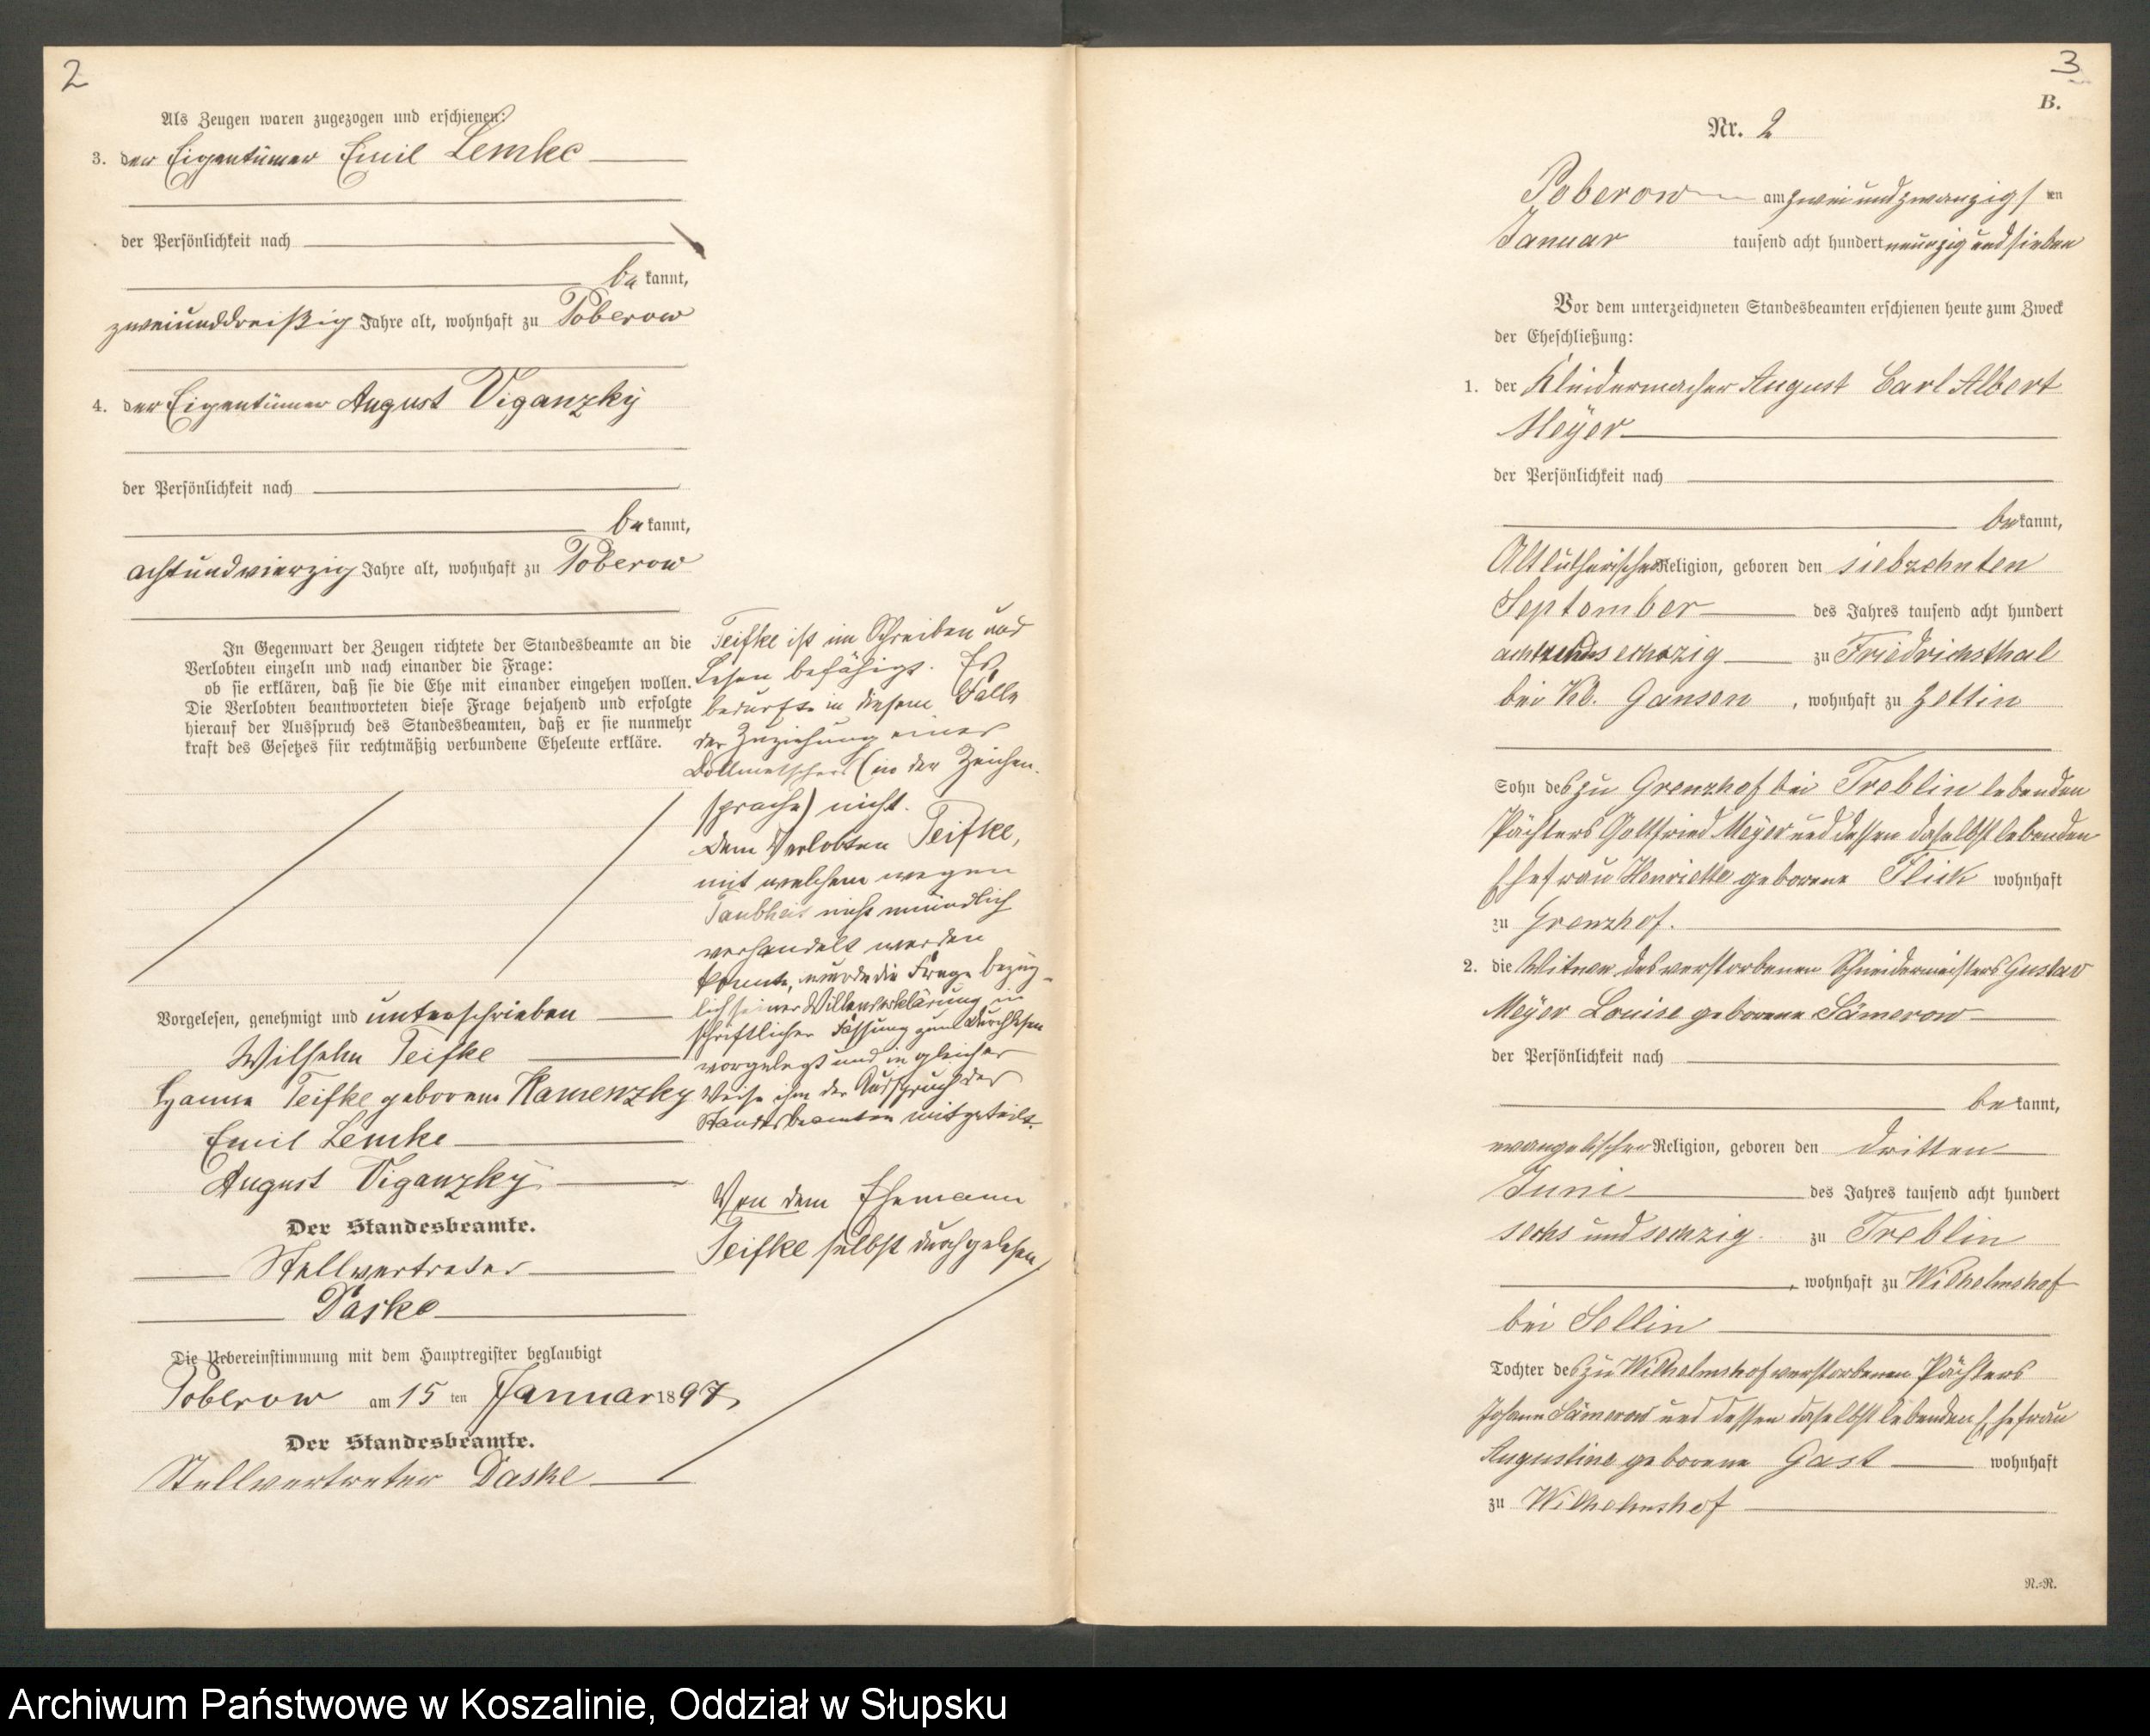 2
Als Zeugen waren zugezogen und erschienen:
3. der Eigentümer Emil Lemke
der Persönlichkeit nach
be kannt,
zweiunddreißig Jahre alt, wohnhaft zu Poberow
4. der Eigentümer August Viganzky
der Persönlichkeit nach
be kannt,
achtundvierzig Jahre alt, wohnhaft zu Poberow
In Gegenwart der Zeugen richtete der Standesbeamte an die
Verlobten einzeln und nach einander die Frage:
ob sie erklären, daß sie die Ehe mit einander eingehen wollen.
Die Verlobten beantworteten diese Frage bejahend und erfolgte
hierauf der Ausspruch des Standesbeamten, daß er sie nunmehr
kraft des Gesetzes für rechtmäßig verbundene Eheleute erkläre.
Teifke ist im Schreiben und
Lesen befähigt. Es
bedurfte in diesem Falle
der Zuziehung eines
Dollmetschers (in der Zeichen-
sprache) nicht.
Dem Verlobten Teifke,
mit welchem wegen
Taubheit nicht mündlich
verhandelt werden
konnte, wurde die Frage bezüg-
lich seiner Willenserklärung in
schriftlicher Fassung zum Durchlesen
vorgelegt und in gleicher
Weise ihm der Ausspruch des
Standesbeamten mitgeteilt.
Von dem Ehemann
Teifke selbst durchgelesen
Vorgelesen, genehmigt und unterschrieben
Wilhelm Teifke
Hanna Teifke geborene Kamenzky
Emil Lemke
August Viganzky
Der Standesbeamte.
Stellvertreter
Daske
Die Uebereinstimmung mit dem Hauptregister beglaubigt
Poberow am 15 ten Januar 1897
Der Standesbeamte.
Stellvertreter Daske
3
B.
Nr. 2
Poberow am zwei und zwanzigs ten
Januar tausend acht hundert neunzig und sieben
Vor dem unterzeichneten Standesbeamten erschienen heute zum Zweck
der Eheschließung:
1. der Kleidermacher August Carl Albert
Meÿer
der Persönlichkeit nach
be kannt,
Altlutherischer Religion, geboren den siebzehnten
September des Jahres tausend acht hundert
acht und sechszig zu Friedrichsthal
bei Kl. Gansen, wohnhaft zu Zettin
Sohn des zu Grenzhof bei Treblin lebenden
Pächters Gottfried Meÿer und dessen daselbst lebenden
Ehefrau Henriette geborene Flick wohnhaft
zu Grenzhof.
2. die Witwe des verstorbenen Schneidermeisters Gustav
Meÿer Louise geborene Sömerow
der Persönlichkeit nach
be kannt,
evangelischer Religion, geboren den dritten
Juni des Jahres tausend acht hundert
sechs und sechzig zu Treblin
, wohnhaft zu Wilhelmshof
bei Sellin
Tochter des zu Wilhelmshof verstorbenen Pächters
Johann Sömerow und dessen daselbst lebenden Ehefrau
Augustine geborene Gast wohnhaft
zu Wilhelmshof
N.-R.
Archiwum Państwowe w Koszalinie, Oddział w Słupsku